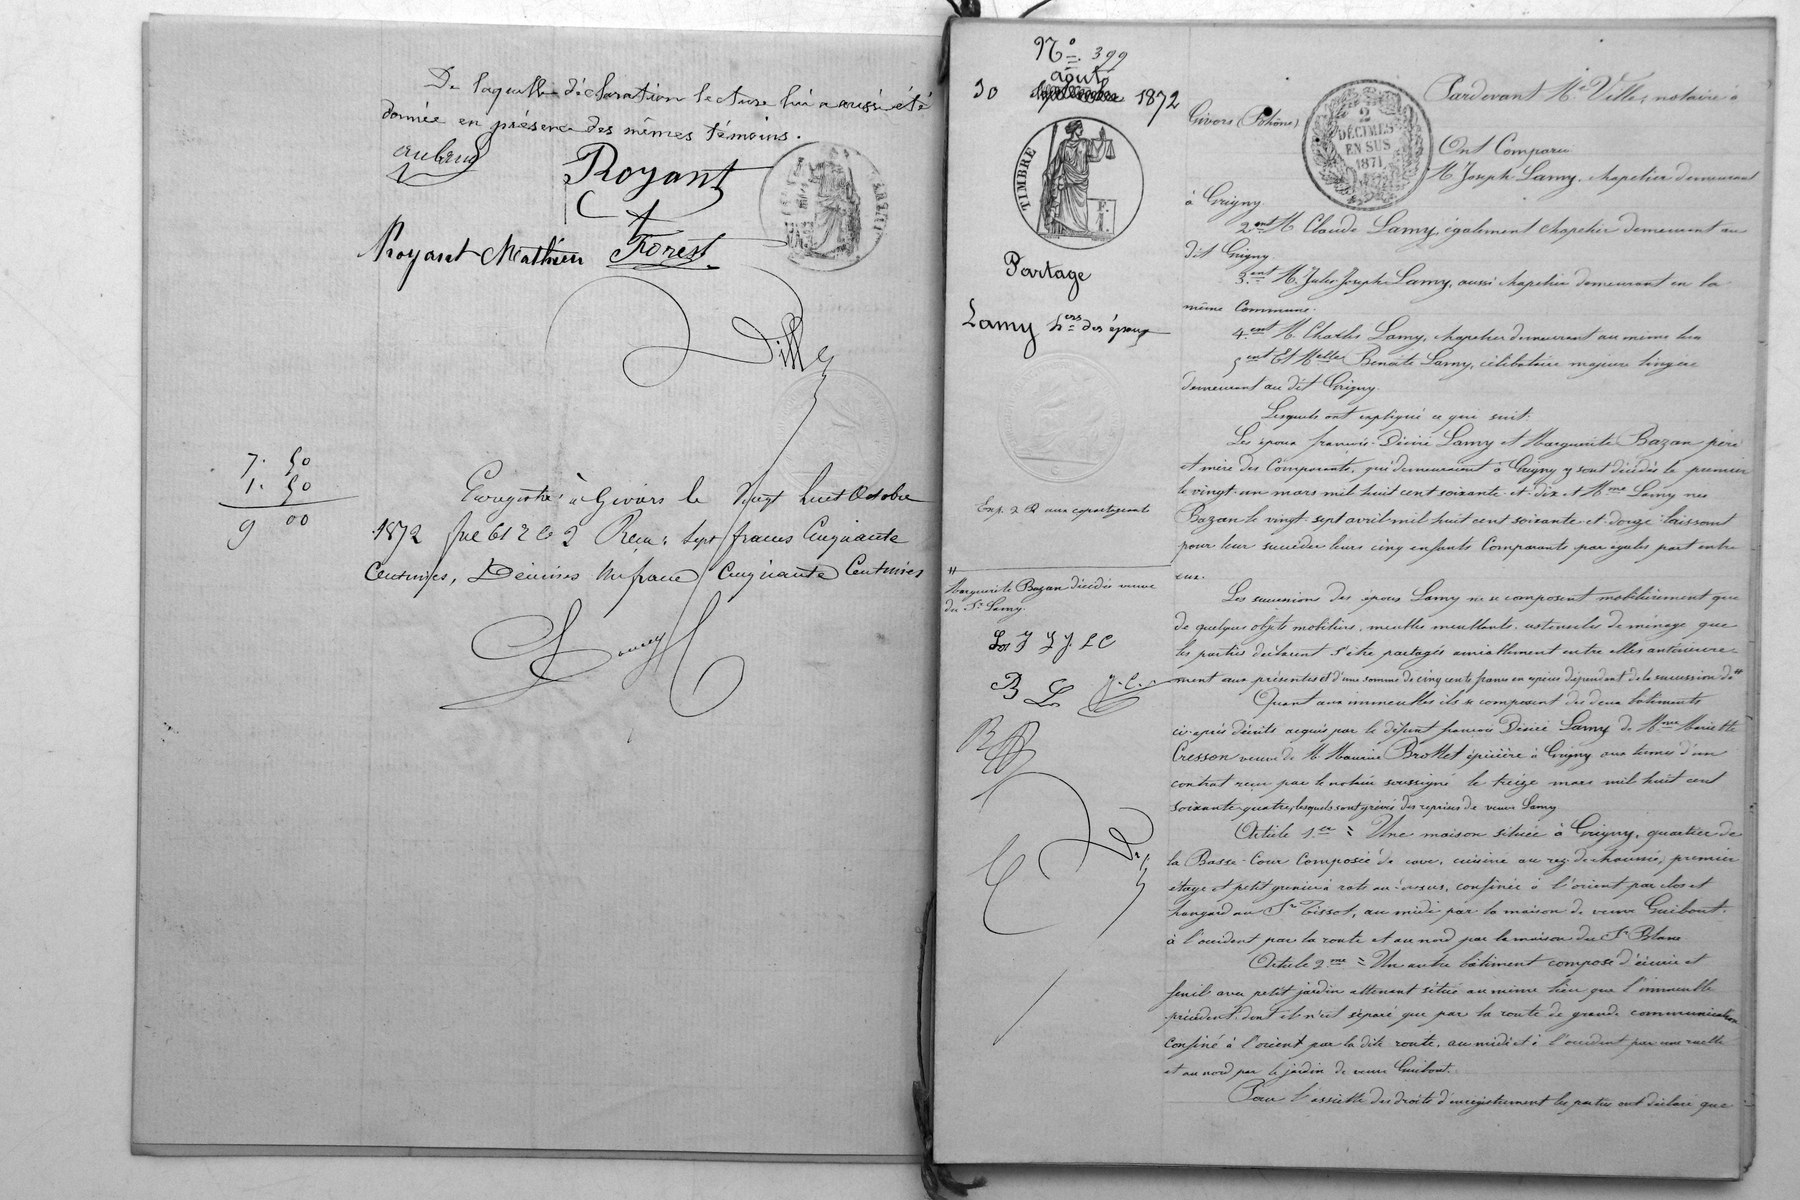 De laquelle déclaration lecture lui a aussi été
donnée en présence des mêmes témoins.
Royant
Royant Mathieu Forest
Ville
7. 50
1. 50
9 00
Enregistré à Givors le Vingt huit Octobre
1872 Reçu: sept francs Cinquante
Centimes, Décimes Un franc Cinquante Centimes
No. 399
août
30 1872
TIMBRE
Partage
Lamy hers des époux
Exp. aux copartageants
Marguerite Bazan décédée veuve
du Sr Lamy.
B L
2
DÉCIMES
EN SUS
1871
Pardevant Me Ville, notaire à
Givors (Rhône)
Ont Comparu
M. Joseph Lamy, chapelier demeurant
à Grigny.
2ent M. Claude Lamy, également chapelier demeurant au
dit Grigny
3.ent M. Jules Joseph Lamy, aussi chapelier demeurant en la
même Commune.
4.ent M. Charles Lamy, chapelier demeurant au même lieu
5ent Et Melle Benoite Lamy, célibataire majeure lingère
demeurant au dit Grigny.
Lesquels ont expliqué ce qui suit.
Les époux François-Désiré Lamy et Marguerite Bazan père
et mère des Comparants, qui demeuraient à Grigny y sont décédés le premier
le vingt-un mars mil huit cent soixante-et-dix et Mme Lamy née
Bazan le vingt-sept avril mil huit cent soixante-et-douze laissant
pour leur succéder leurs cinq enfants Comparants par égales part entre
eux.
Les successions des époux Lamy ne se composent mobilièrement que
de quelques objets mobiliers, meubles meublants, ustensiles de ménage que
les parties déclarent s'être partagés amiablement entre elles antérieure-
ment aux présentes et d'une somme de cinq cents francs en espèces dépendant de la succession de "
Quant aux immeubles ils se composent de deux bâtiments
ci-après décrits acquis par le défunt François Désiré Lamy de Mme Mariette
Cresson veuve de M. Maurice Brottet épicière à Grigny aux termes d'un
contrat reçu par le notaire soussigné le treize mars mil huit cent
soixante-quatre, lesquels sont grévés des reprises de veuve Lamy
Article 1.er = Une maison située à Grigny, quartier de
la Basse-Cour Composée de cave, cuisine au rez-de-chaussée, premier
étage et petit grenier à rats au-dessus, confinée à l'orient par clos et
hangard au Sr Tissot, au midi par la maison de veuve Guibout.
à l'occident par la route et au nord par la maison du Sr Blanc
Article 2.me = Un autre bâtiment composé d'écurie et
fenil avec petit jardin attenant situé au même lieu que l'immeuble
précédent dont il n'est séparé que par la route de grande communication
Confiné à l'orient par la dite route, au midi et à l'occident par une ruelle
et au nord par le jardin de veuve Guibout.
Pour l'assiette des droits d'enregistrement les parties ont déclaré que